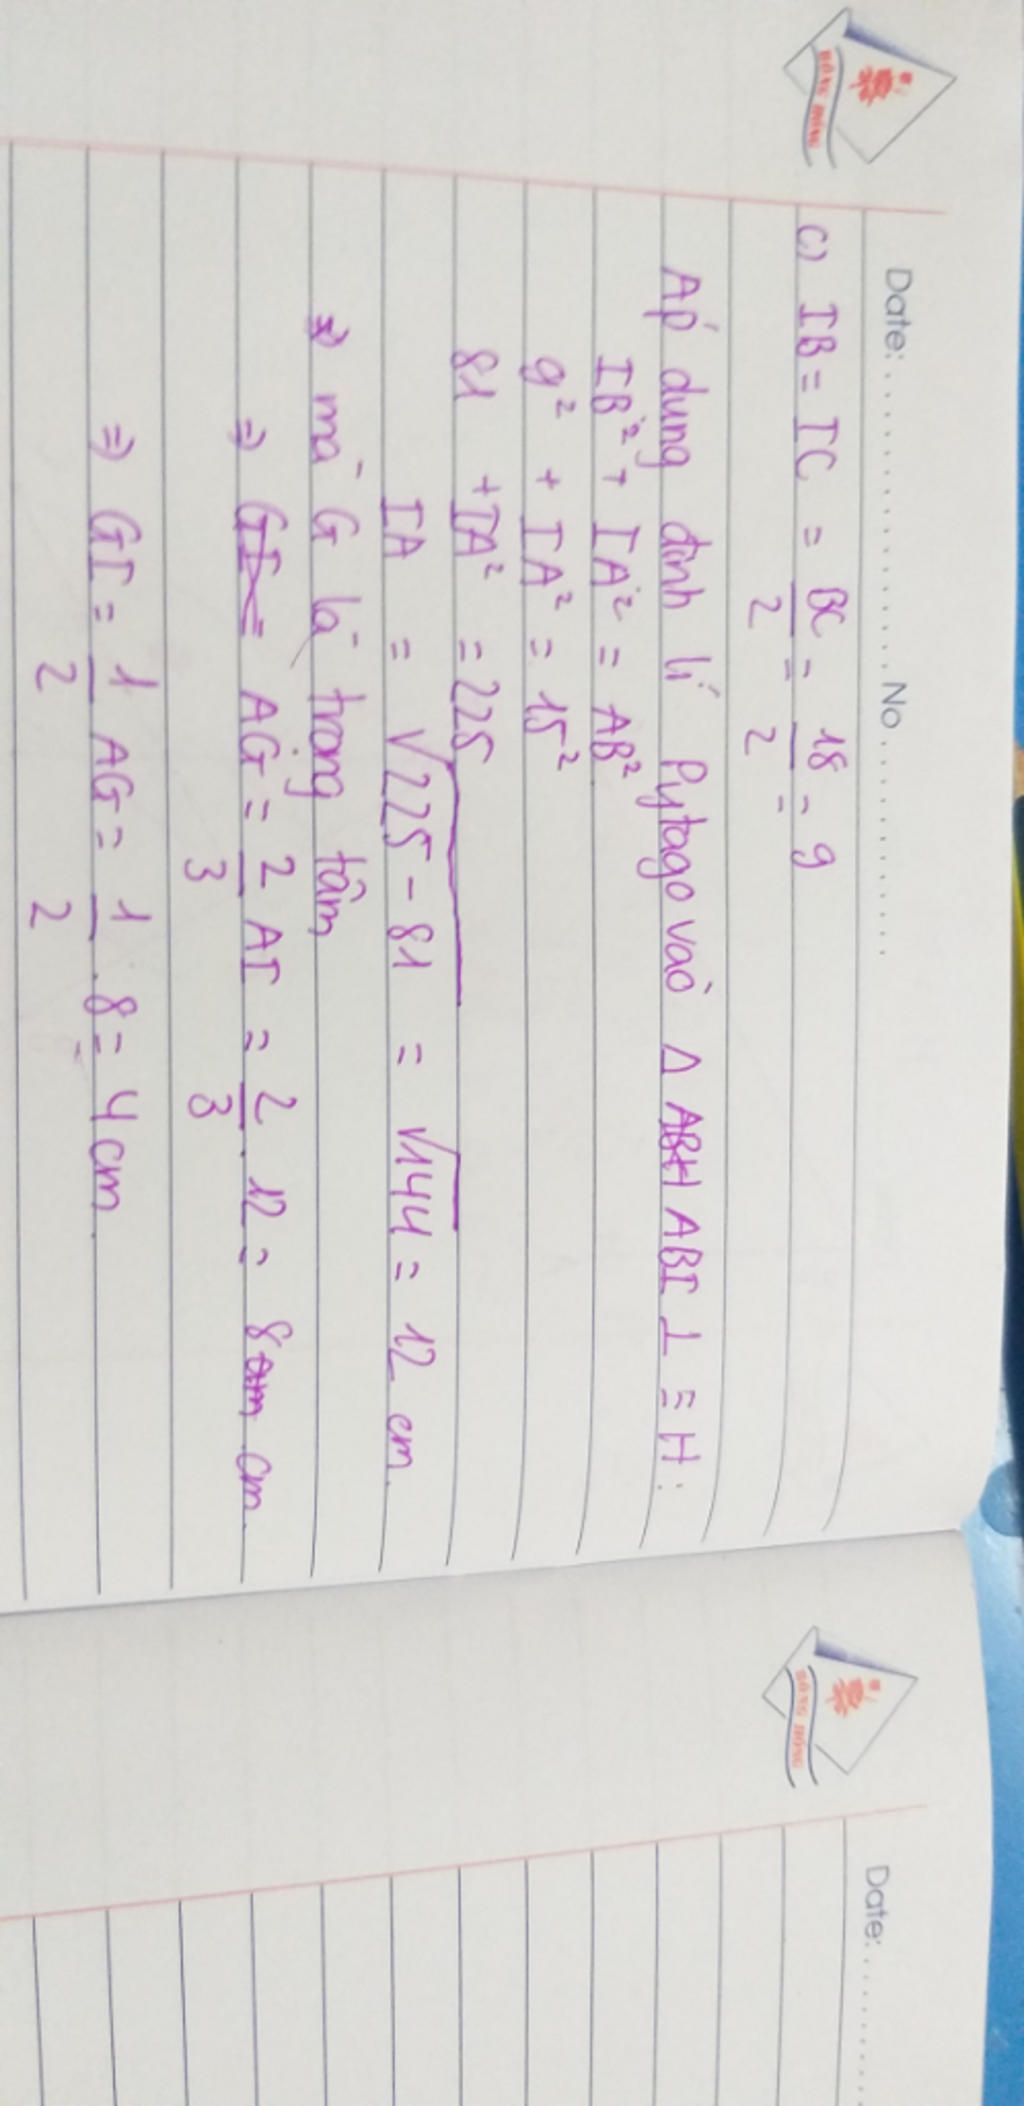 HỒNG HÀ
Date:....................No....................
c) IB = IC = BC/2 = 18/2 = 9
Áp dụng định lí Pytago vào Δ ABH ABI ⊥ = H :
IB² + IA² = AB²
9² + IA² = 15²
81 + IA² = 225
IA = √225 - 81 = √144 = 12 cm.
=> mà G là trọng tâm
=> GI = AG = 2/3 AI = 2/3 . 12 = 8 cm cm.
=> GI = 1/2 AG = 1/2 . 8 = 4 cm.
Date:..........